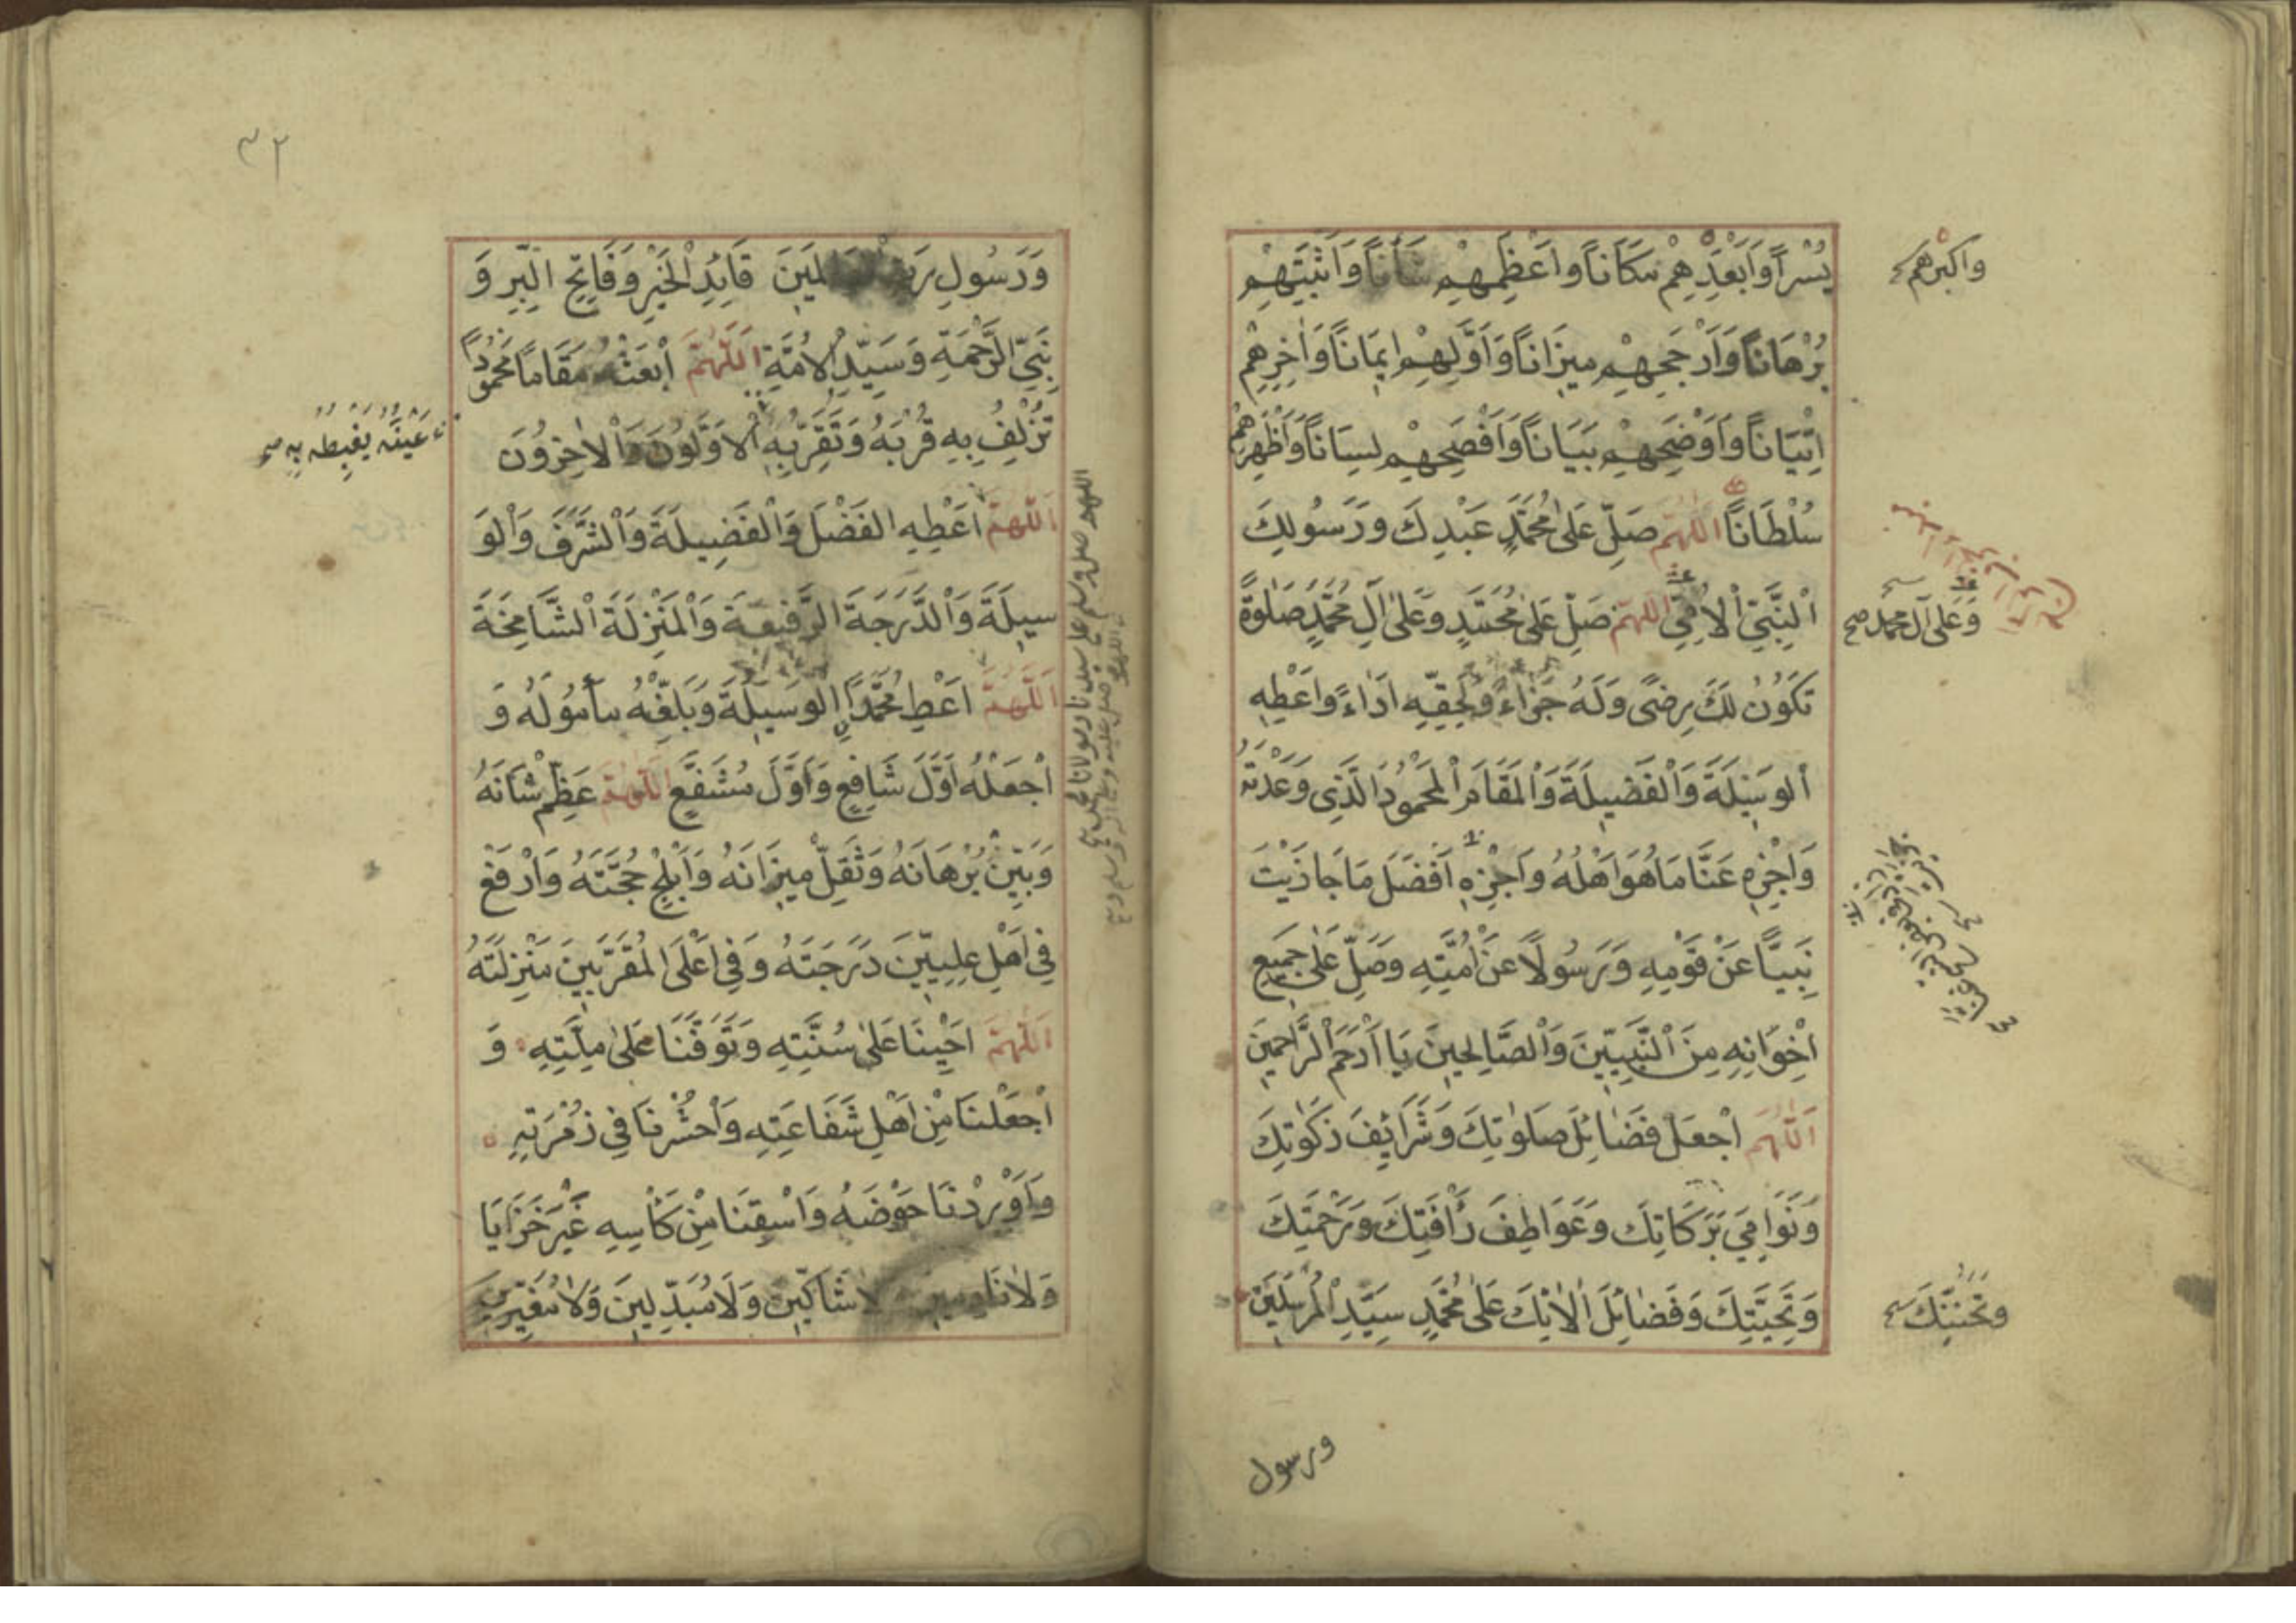 يُسْراً وَأَبْعَدِهِمْ مَكَاناً وَاَعْظَمِهِمْ شَأْناً وَاَثْبَتِهِمْ
بُرْهَاناً وَاَرْجَحِهِمْ مِيزَاناً وَاَوَّلِهِمْ اِيمَاناً وَاٰخِرِهِمْ
اِتْيَاناً وَاَوْضَحِهِمْ بَيَاناً وَاَفْصَحِهِمْ لِسَاناً وَاَظْهَرِهِمْ
سُلْطَاناً اَللّٰهُمَّ صَلِّ عَلٰى مُحَمَّدٍ عَبْدِكَ وَرَسُولِكَ
اَلنَّبِيِّ اْلاُمِّيِّ اَللّٰهُمَّ صَلِّ عَلٰى مُحَمَّدٍ وَعَلٰى اٰلِ مُحَمَّدٍ صَلٰوةً
تَكُونُ لَكَ رِضًى وَلَهُ جَزَاءً وَلِحَقِّهِ اَدَاءً وَاَعْطِهِ
اَلْوَسِيلَةَ وَاَلْفَضِيلَةَ وَاَلْمَقَامَ اَلْمَحْمُودَ الَّذِى وَعَدْتَهُ
وَاَجْزِهِ عَنَّا مَا هُوَ اَهْلُهُ وَاَجْزِهِ اَفْضَلَ مَا جَازَيْتَ
نَبِيًّا عَنْ قَوْمِهِ وَرَسُولًا عَنْ اُمَّتِهِ وَصَلِّ عَلٰى جَمِيعِ
اِخْوَانِهِ مِنَ اَلنَّبِيِّينَ وَاَلصَّالِحِينَ يَا اَرْحَمَ اَلرَّاحِمِينَ
اَللّٰهُمَّ اجْعَلْ فَضَائِلَ صَلَوٰتِكَ وَشَرَائِفَ زَكَوٰتِكَ
وَنَوَامِيَ بَرَكَاتِكَ وَعَوَاطِفَ رَأْفَتِكَ وَرَحْمَتِكَ
وَتَحِيَّتِكَ وَفَضَائِلَ اٰلَائِكَ عَلٰى مُحَمَّدٍ سَيِّدِ اْلمُرْسَلِينَ
واكبرهم
وَعَلَى آلِ محمد صح
وتَحَنُّنِكَ صح
ورسول
٣٢
وَرَسُولِ رَبِّ الْعَالَمِينَ قَائِدِ الْخَيْرِ وَفَاتِحِ الْبِرِّ وَ
نَبِيِّ الرَّحْمَةِ وَسَيِّدِ اْلاُمَّةِ اَللّٰهُمَّ اَبْعَثْهُ مَقَامًا مَحْمُودًا
تُزْلِفُ بِهِ قُرْبَهُ وَتُقِرُّ بِهِ اْلاَوَّلُونَ وَاْلاٰخِرُونَ
اَللّٰهُمَّ اَعْطِهِ الْفَضْلَ وَاْلفَضِيلَةَ وَاْلشَّرَفَ وَاْلوَ
سِيلَةَ وَاْلدَّرَجَةَ الرَّفِيعَةَ وَاْلمَنْزِلَةَ اْلشَّامِخَةَ
اَللّٰهُمَّ اَعْطِ مُحَمَّدًا الْوَسِيلَةَ وَبَلِّغْهُ مَأْمُولَهُ وَ
اْجْعَلْهُ اَوَّلَ شَافِعٍ وَاَوَّلَ مُشَفَّعٍ اَللّٰهُمَّ عَظِّمْ شَانَهُ
وَبَيِّنْ بُرْهَانَهُ وَثَقِّلْ مِيزَانَهُ وَاَبْلِجْ حُجَّتَهُ وَارْفَعْ
فِى اَهْلِ عِلِّيِّينَ دَرَجَتَهُ وَفِى اَعْلَى الْمُقَرَّبِينَ مَنْزِلَتَهُ
اَللّٰهُمَّ اَحْيِنَا عَلٰى سُنَّتِهِ وَتَوَفَّنَا عَلٰى مِلَّتِهِ وَ
اْجْعَلْنَا مِنْ اَهْلِ شَفَاعَتِهِ وَاْحْشُرْنَا فِى زُمْرَتِهِ
وَاَوْرِدْنَا حَوْضَهُ وَاَسْقِنَا مِنْ كَأْسِهِ غَيْرَ خَزَايَا
وَلَا نَادِمِينَ وَلَا شَاكِّينَ وَلَا مُبَدِّلِينَ وَلَا مُغَيِّرِينَ
عَيْنَهُ يَغْبِطُهُ بِهِ صح